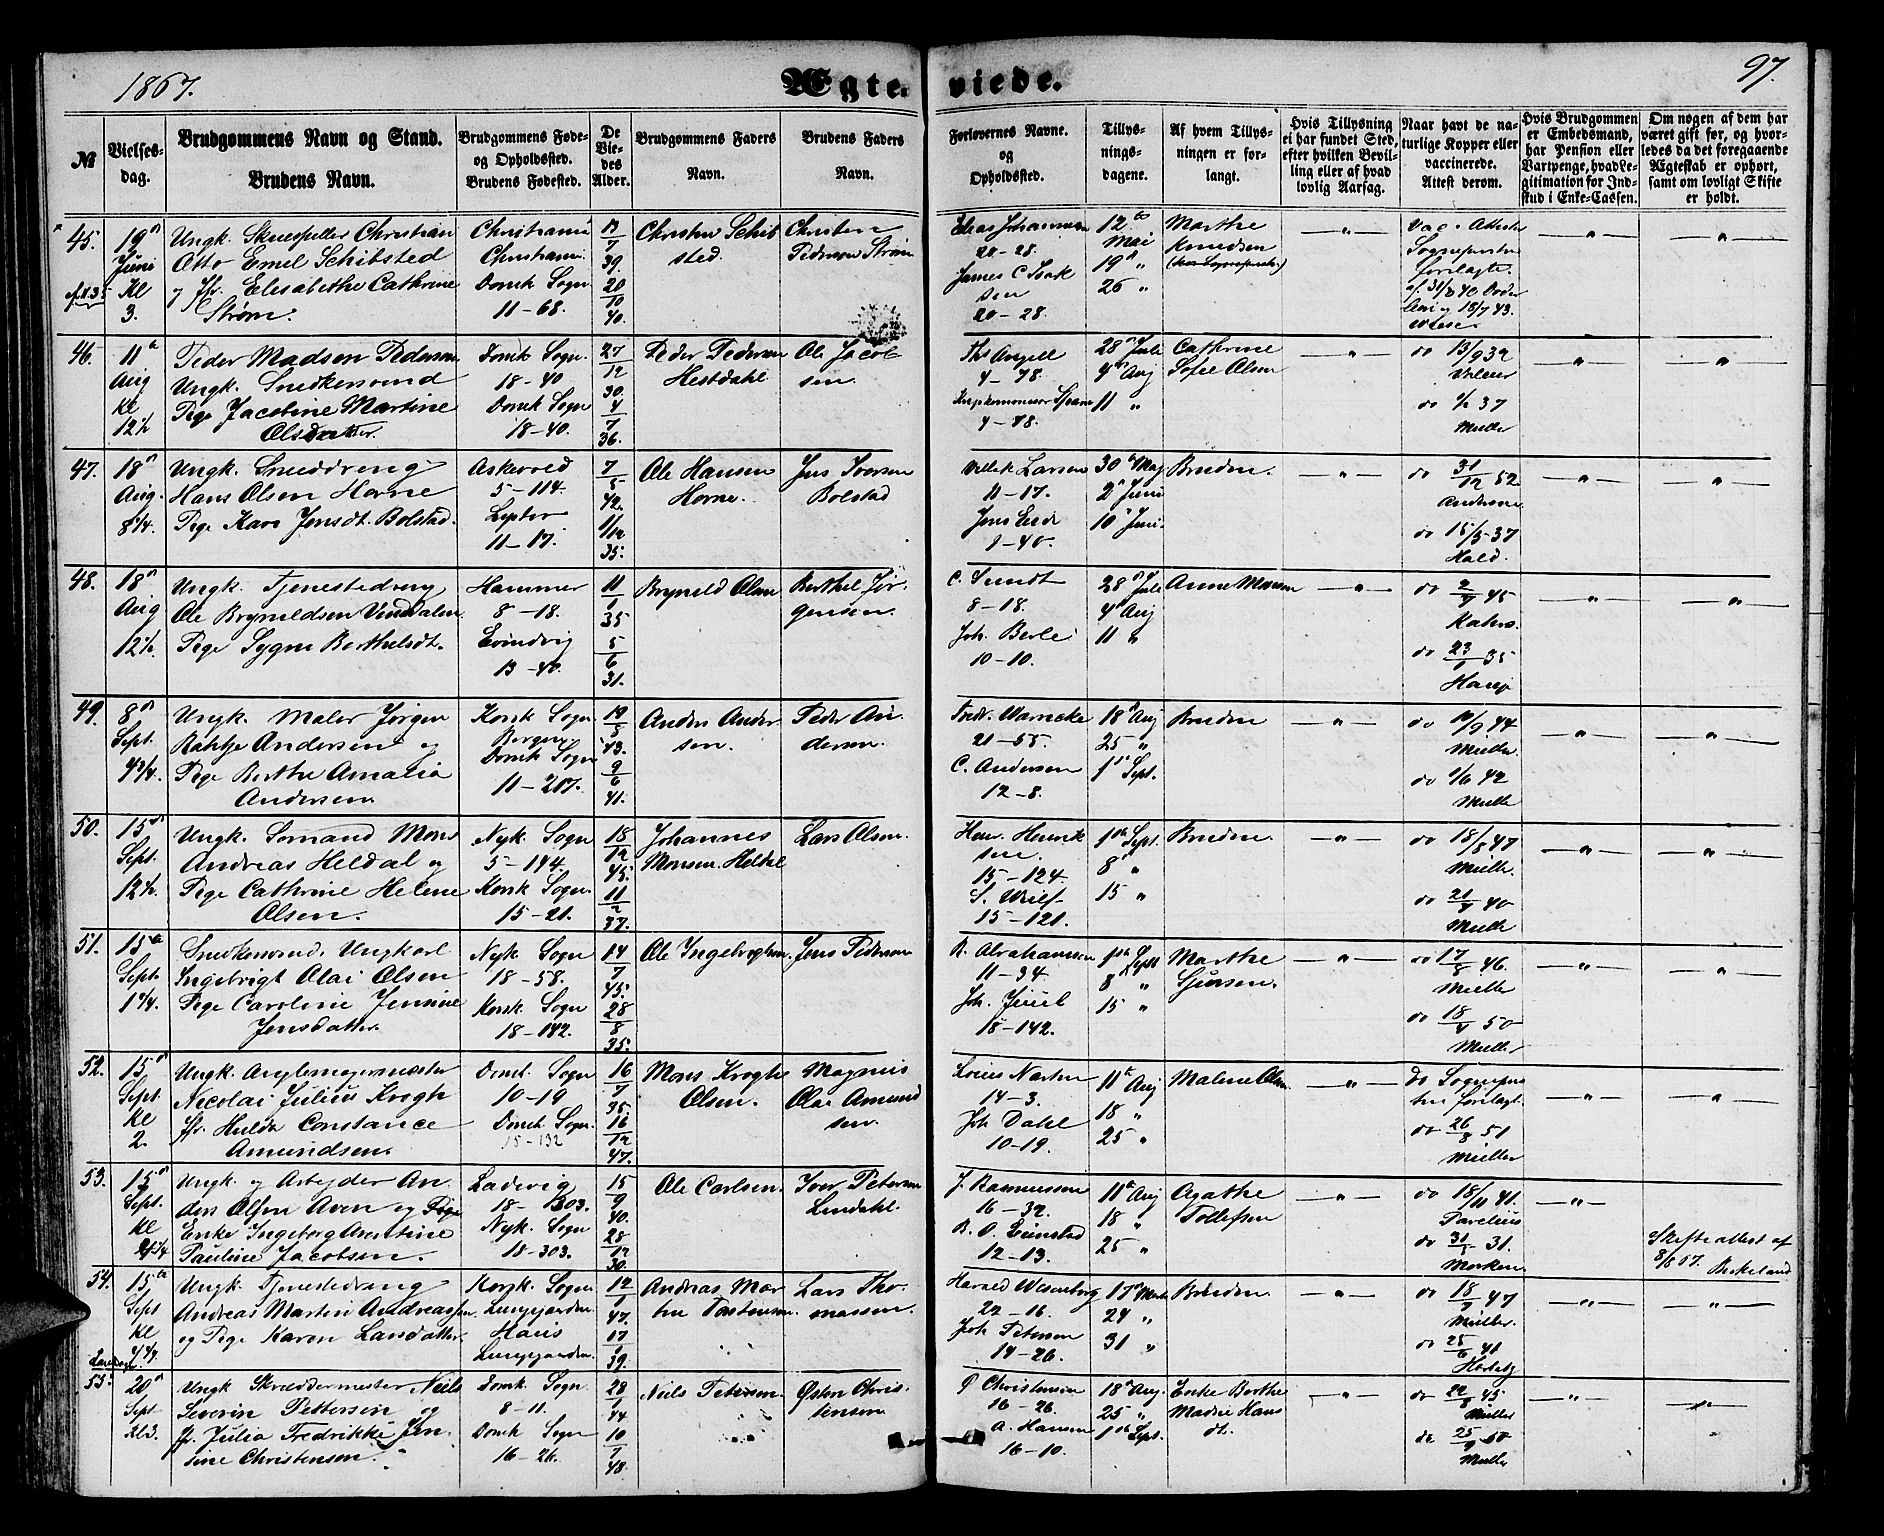 1867.
Ægte-
viede.
97.
№
Vielses-
dag.
Brudgommens Navn og Stand.
Brudens Navn.
Brudgommens Føde-
og Opholdssted.
Brudens Fødested.
De
Vie-
des
Alder.
Brudgommens Faders
Navn.
Brudens Faders
Navn.
Forlovernes Navne.
og
Opholdssted.
Tillys-
nings-
dagene.
Af hvem Tillys-
ningen er for-
langt.
Hvis Tillysning
ei har fundet Sted,
efter hvilken Bevil-
ling eller af hvad
lovlig Aarsag.
Naar havt de na-
turlige Kopper eller
vaccinerede.
Attest derom.
Hvis Brudgommen
er Embedsmand,
har Pension eller
Vartpenge, hvad Le-
gitimation for Ind-
skud i Enke-Cassen.
Om nogen af dem har
været gift før, og hvor-
ledes da det foregaaende
Ægteskab er ophørt,
samt om lovligt Skifte
er holdt.
45.
19
Juni
Kl
3.
Ungk. Skuespiller Christian
Otto Emil Schibsted
og Jfr. Elisabethe Cathrine
Strøm.
Christiania
Christiania
Domk Sogn
11-68.
13
7
39.
20
10
40.
Christen Schib
sted.
Christen
Pedersen Strøm
Elias Johannesen
20-28.
James C Isak
sen
20-28.
12
Mai
19 "
26 "
Marthe
Knudsen
-"-
Vac. Attester
Sogneprester
forelagte.
-"-
-"-
46.
11
Aug
Kl
12½
Peder Madsen Pedersen
Ungk. Snedkersvend
Pige Jacobine Martine
Olsdatter.
Domk Sogn.
18-40
Domk Sogn
18-40.
27
12
30.
4
7
36.
Peder Pedersen
Hestdahl
Ole Jacob
sen.
Ths Angell
4-78.
4-78.
28 Juli
4 Aug
11 "
Cathrine
Sofie Olsen
-"-
do 13/9 32
do 37
Müller
-"-
-"-
47.
18
Aug.
8¼.
Ungk. Smeddreng
Hans Olsen Horne
Pige Kari Jensdt. Bolstad.
Askevold
5-114.
Lyster
11-17.
7
5
42.
11/12
35.
Ole Hansen
Horne.
Jens Iversen
Bolstad
Larsen
11-17.
Jens
9-40.
30 Maj
2 Juni
10 Juni
Bruden.
-"-
do 31/12 52
Andersen
do 15/5-37
Hald.
-"-
-"-
48.
18
Aug
12½.
Ungk. Tjenestedreng
Ole Brynildsen Vindalen
Pige Sygni Berthelsdt.
Hammer
8-18.
Evindvig
13-40.
11
1
35
5
6
31.
Brynild Olsen
Berthel Jør-
gensen.
C. Sundt
8-18.
Joh. Berle
10-10.
28 Juli
4 Aug
11 "
Anne Monsen
-"-
do 2/7 45
do 23/1 35
-"-
-"-
49.
8
Sept.
4¾.
Ungk. Maler Jørgen
Andersen og
Pige Berthe Amalia
Andersen
Korsk Sogn
Bergen.
Domk Sogn
11-217.
19
5
43.
9
6
41.
Anders Ander
sen.
Peder An
dersen.
Fredr. Warncke
21-55.
C. Andersen
12-8.
18 Aug
25 "
1 Sept.
Bruden
-"-
do 10/9 44
Müller.
do 1/6 42
Müller
-"-
-"-
50.
15
Sept.
12½.
Ungk. Sømand Mons
Andreas Heldal og
Pige Cathrine Helene
Olsen.
Nyk. Sogn
5-194.
Korsk Sogn.
15-21.
18
12
45.
11
2
37.
Johannes
Monsen Heldal
Lars Olsen.
Henr. Henrik
sen.
15-124.
15-121.
1 Sept.
8 "
15 "
Bruden.
-"-
do 18/8 47
Müller.
do 21/7 40
Müller
-"-
-"-
51.
15
Sept
1¼.
Snedkersvend, Ungkarl
Ingebrigt Olai Olsen
Pige Caroline Jensine
Jensdatter
Nyk. Sogn
18-58.
Korsk. Sogn
18-142.
14
7
45.
28
8
35.
Ole Ingebrigtsen.
Jens Pedersen
R. Abrahamsen
11-34.
Joh. Juul
18-142.
1 Sept
8 "
15 "
Marthe
Sjursen.
-"-
do 17/8 46.
Müller
do 18/7 50
Müller
-"-
-"-
52.
15
Sept
Kl
2.
Ungk.
Nicolai Julius Krogh
Jfr. Hulda Constance
Amundsen.
Domk. Sogn
10-19
Domk. Sogn.
15-132
16
7
35.
16
12
47.
Mons Krogh
Olsen.
Magnus
Olai Amund
sen.
14-3.
Joh Dahl
10-19.
11 Aug
18 "
25 "
Malene Olsen
-"-
do Sognepres
ten forelagt.
do 26/8 51
Müller
-"-
-"-
53.
15
Sept.
Kl
Ungk. og Arbejder An-
ders Olsen Aven og Pige
Enke Ingeborg Anestine
Pauline Jacobsen.
Ladevig
18-303.
Nyk. Sogn
18-303.
15
9
40.
28
12
30.
Ole Carlsen.
Iver Petersen
Lindahl.
J. Rasmussen
16-32.
12-13.
11 Aug
18 "
25 "
Agathe
Tollefsen
-"-
do 18/11 41.
Pavelius
do 31/5 31.
Morken.
-"-
Skifteattest af
8/8 67. Birkeland
54.
15
Sept
Kl
Ungk. Tjenestedreng
Andreas Martin Andreassen
og Pige Karen Larsdatter.
Korsk. Sogn
Lungegaarden.
Haus
Lungegaarden.
12
1
47.
17
1
39.
Andreas Mar
tin Torstensen.
Lars Tho-
massen.
Harald Wesenberg
22-16.
Joh Petersen
14-26.
17 Marts
24 "
31 "
Bruden.
-"-
do 18/7 47
Müller.
do 25/6 41
-"-
-"-
55.
20
Sept
Kl 3.
Ungk Skræddermester Niels
Severin Pettersen og
Jfr. Julia Fredrikke Jen-
sine Christensen.
Domk. Sogn
8-11.
Domk Sogn
16-26.
28
1
44
10
7
48.
Niels Petersen.
Østen Chris-
tensen
P Christensen
16-26
A. Hansen
16-10.
18 Aug.
25 "
1 Sept.
Enke Berthe
Madsie Hans
dt.
-"-
do 22/8 45
Müller
do 25/9 50
Müller
-"-
-"-